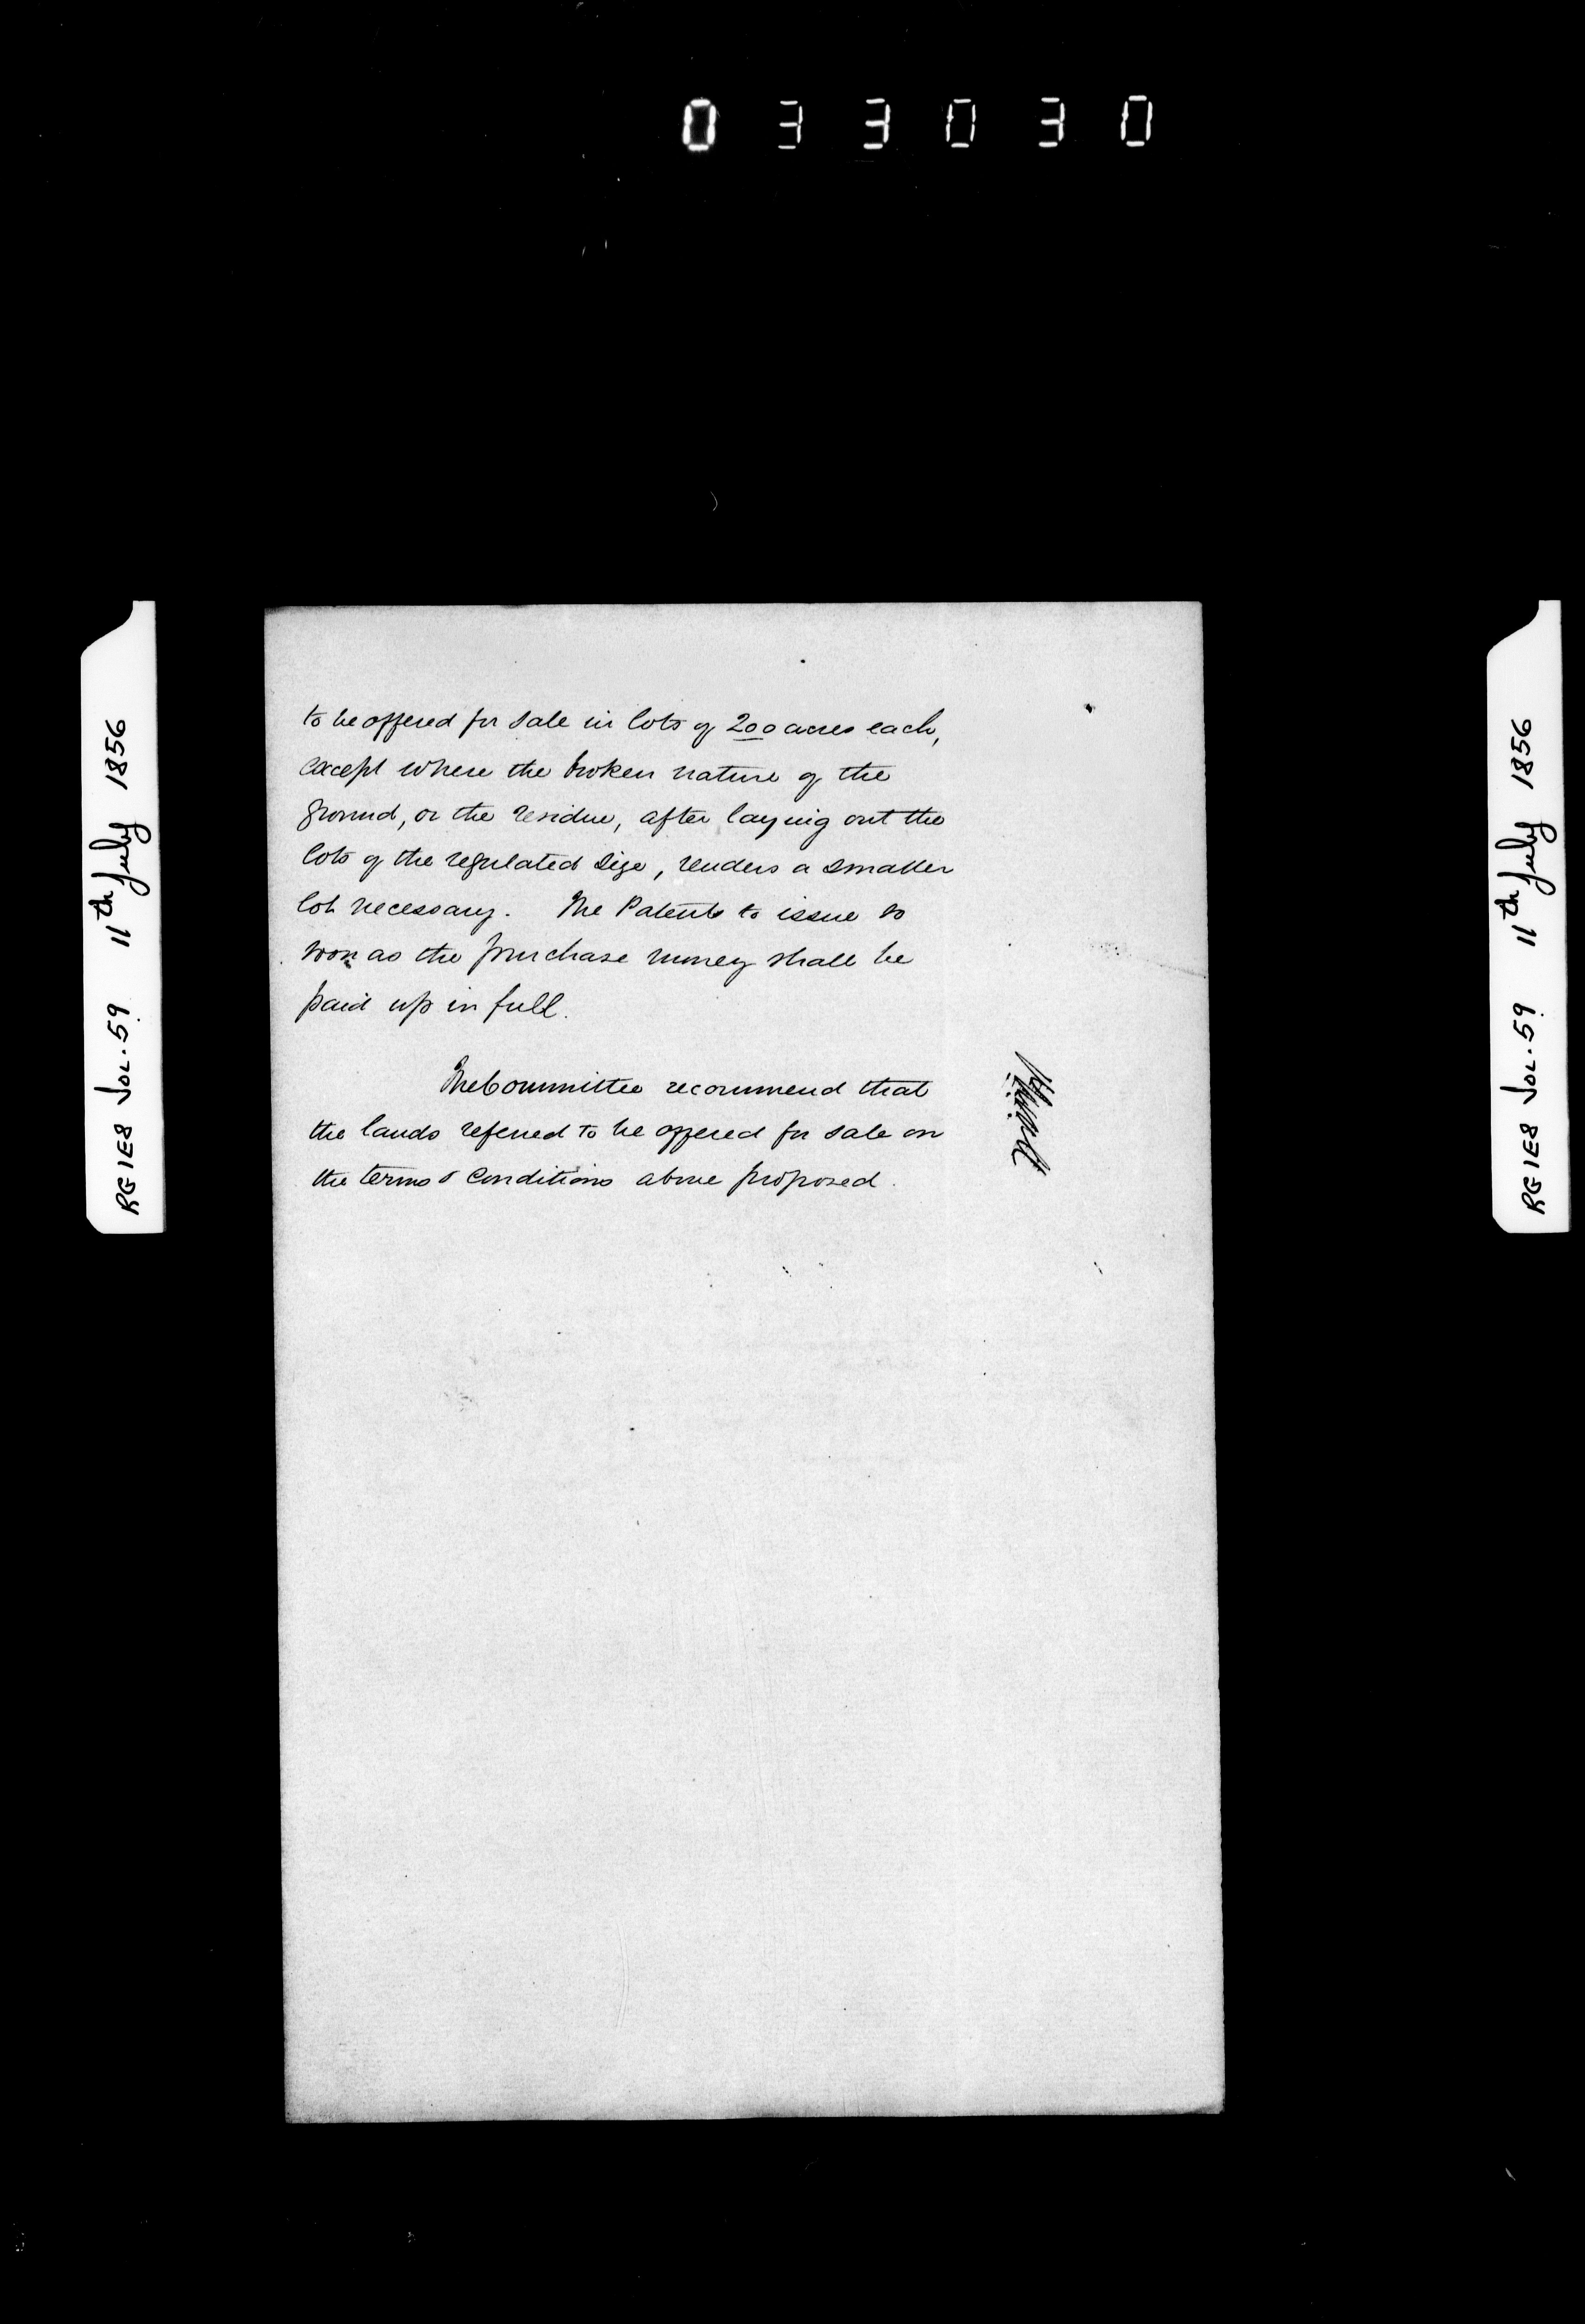 033030
RG1E8 VOL.59 11th July 1856
to be offered for sale in lots of 200 acres each,
except where the broken nature of the
ground, or the residue, after laying out the
lots of the regulated size, renders a smaller
lot necessary. The Patents to issue so
soon as the purchase money shall be
paid up in full.
The Committee recommend that
the lands referred to be offered for sale on
the terms & conditions above proposed.
RG1E8 VOL.59 11th July 1856